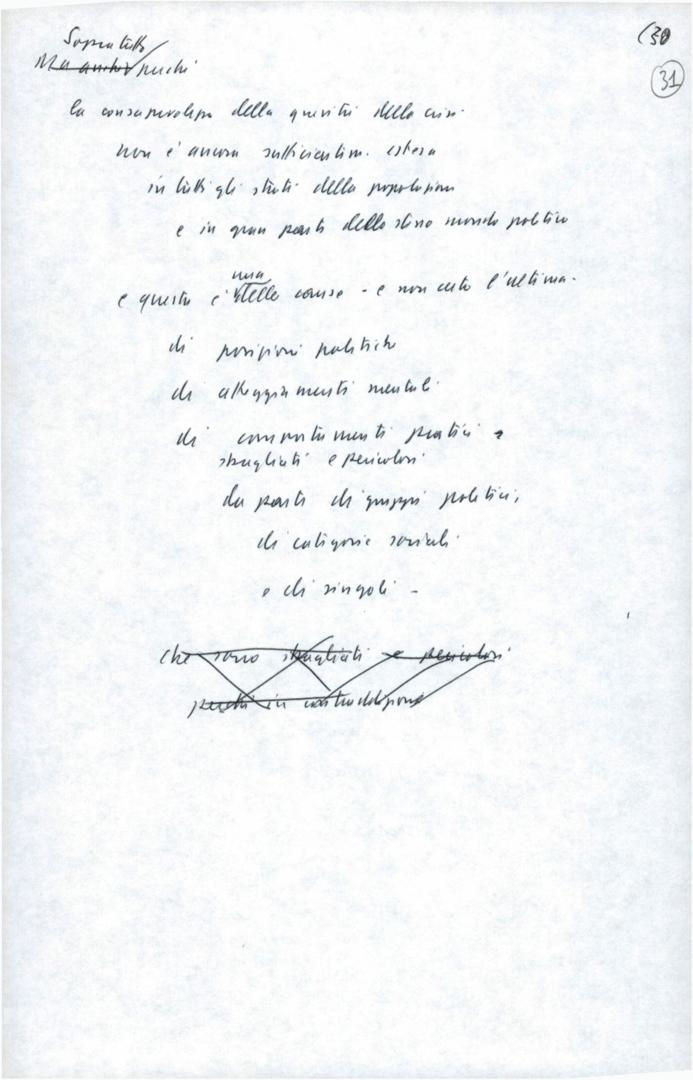 (30
31
Sopratutto
Ma anche perché
la consapevolezza della gravità della crisi
non è ancora sufficientem. estesa
in tutti gli strati della popolazione
e in gran parte dello stesso mondo politico
una
e questa è delle cause - e non certo l'ultima -
di posizioni politiche
di atteggiamenti mentali
di comportamenti pratici
sbagliati e pericolosi
da parte di gruppi politici,
di categorie sociali
e di singoli -
che sono sbagliati e pericolosi
perché in contraddizione